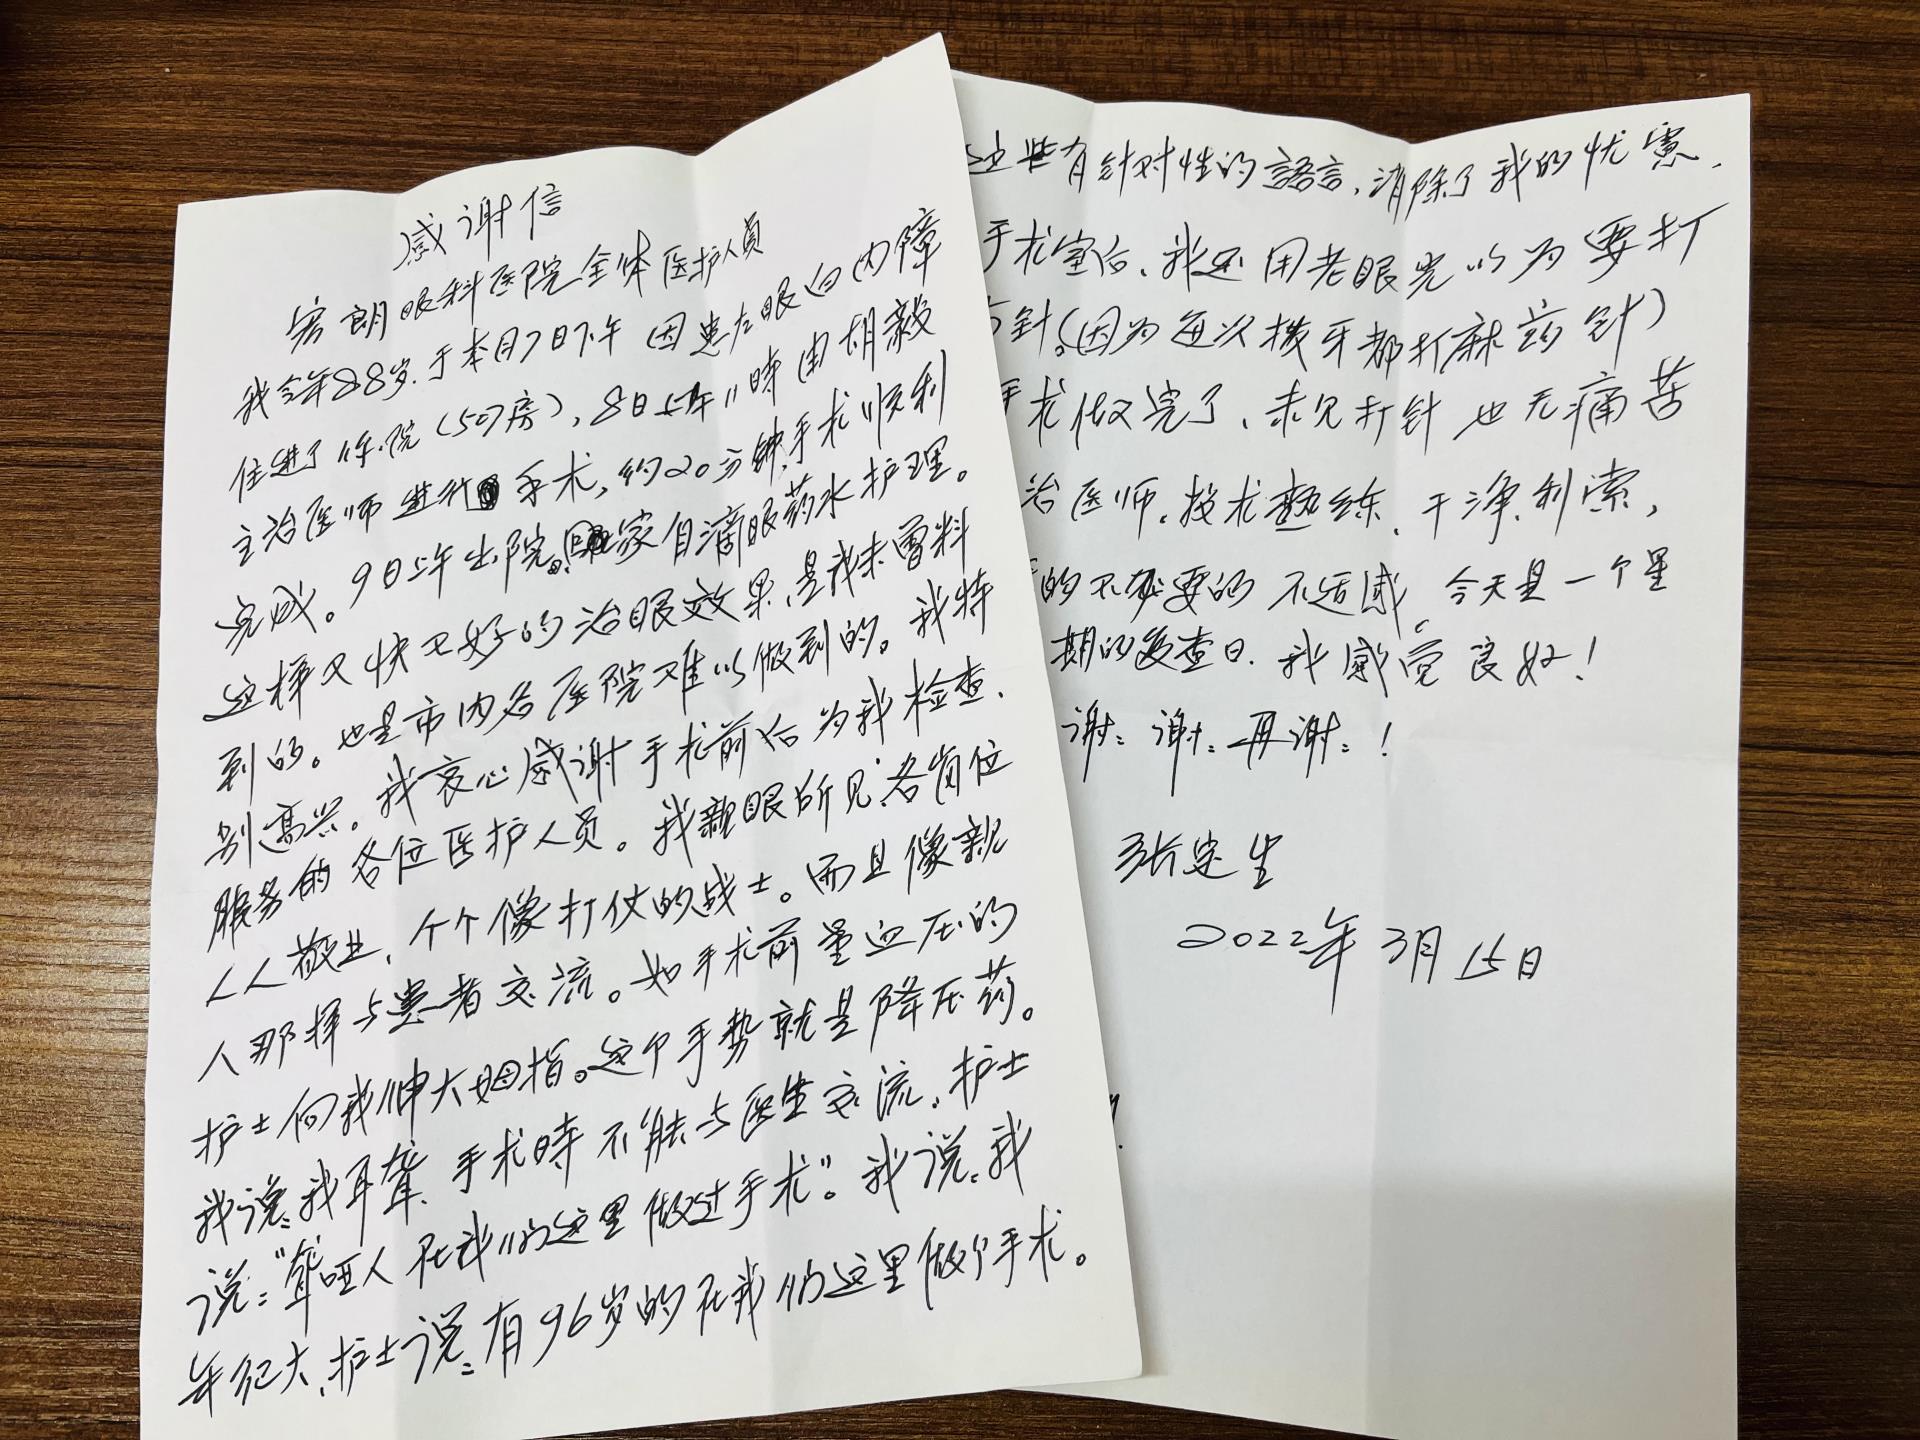 感谢信
宏朗眼科医院全体医护人员
我今年88岁.于本月7日下午因患左眼白内障
住进了你院(507房),8日上午11时由胡毅
主治医师进行手术,约20分钟,手术顺利
完成。9日上午出院。回家自滴眼药水护理。
这样又快又好的治眼效果,是我未曾料
到的。也是市内各医院难以做到的。我特
别高兴。我衷心感谢手术前后为我检查、
服务的各位医护人员。我亲眼所见,各岗位
人人敬业,个个像打仗的战士。而且像亲
人那样与患者交流。如手术前量血压的
护士向我伸大姆指。这个手势就是降压药。
我说:我耳聋、手术时不能与医生交流,护士
说:"聋哑人在我们这里做过手术"。我说,我
年纪大,护士说:有96岁的在我们这里做个手术。
这些有针对性的語言,消除了我的忧虑.
手术室后,我还用老眼光以为要打
针(因为每次拨牙都打麻药针)
手术做完了、未见打针也无痛苦
治医师,技术熟练、干净、利索,
的不必要的不适感。今天是一个星
期的复查日.我感觉良好!
谢:谢:再谢:!
张定生
2022年3月15日